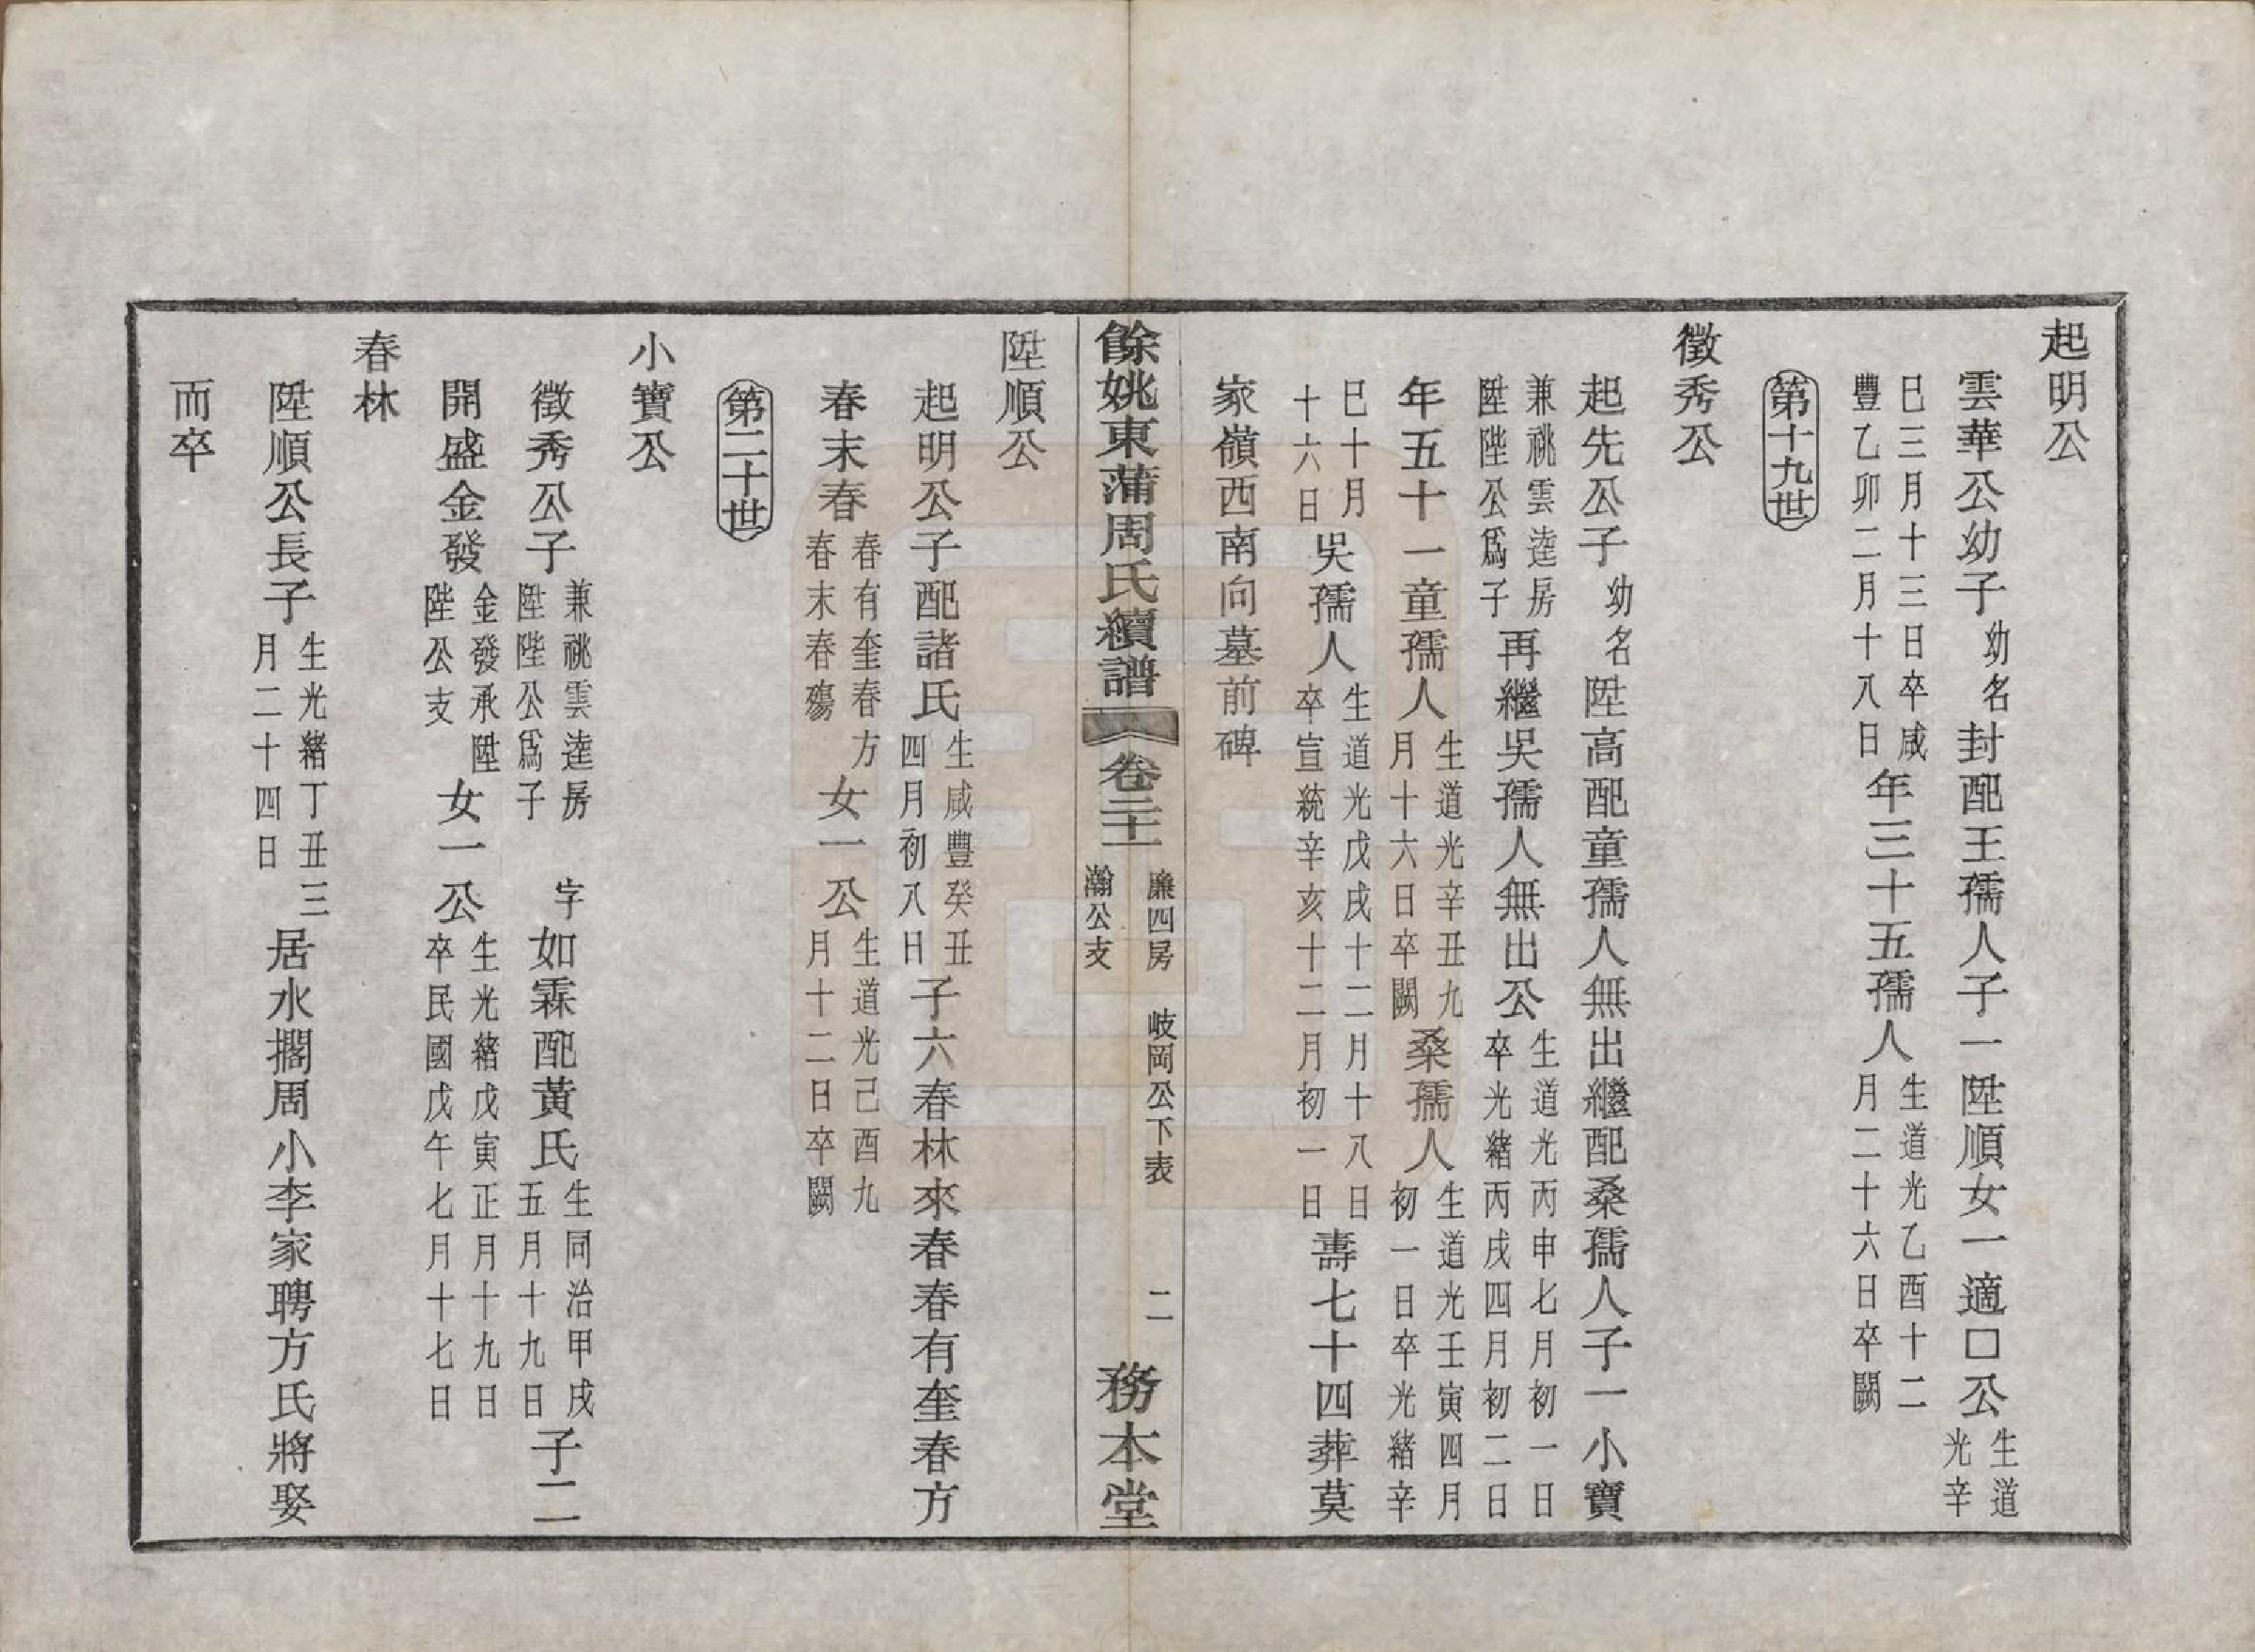 起明公
雲華公幼子幼名封配王孺人子一陞順女一適囗公生道光辛
巳三月十三日卒咸豐乙卯二月十八日年三十五孺人生道光乙酉十二月二十六日卒闕
第十九世
徵秀公
起先公子幼名陞高配童孺人無出繼配桑孺人子一小寶
兼祧雲逵房陞陛公爲子再繼吳孺人無出公生道光丙申七月初一日卒光緒丙戌四月初二日
年五十一童孺人生道光辛丑九月十六日卒闕桑孺人生道光壬寅四月初一日卒光緒辛
巳十月十六日吳孺人生道光戊戌十二月十八日卒宣統辛亥十二月初一日壽七十四葬莫
家嶺西南向墓前碑
餘姚東蒲周氏續譜 卷二十二 廉四房 岐岡公下表 瀚公支 二 務本堂
陞順公
起明公子配諸氏生咸豐癸丑四月初八日子六春林來春春有奎春方
春末春春有奎春方春末春殤女一公生道光己酉九月十二日卒闕
第二十世
小寶公
徵秀公子兼祧雲逵房陞陛公爲子字如霖配黃氏生同治甲戌五月十九日子二
開盛金發金發承陞陛公支女一公生光緒戊寅正月十九日卒民國戊午七月十七日
春林
陞順公長子生光緒丁丑三月二十四日居水擱周小李家聘方氏將娶
而卒